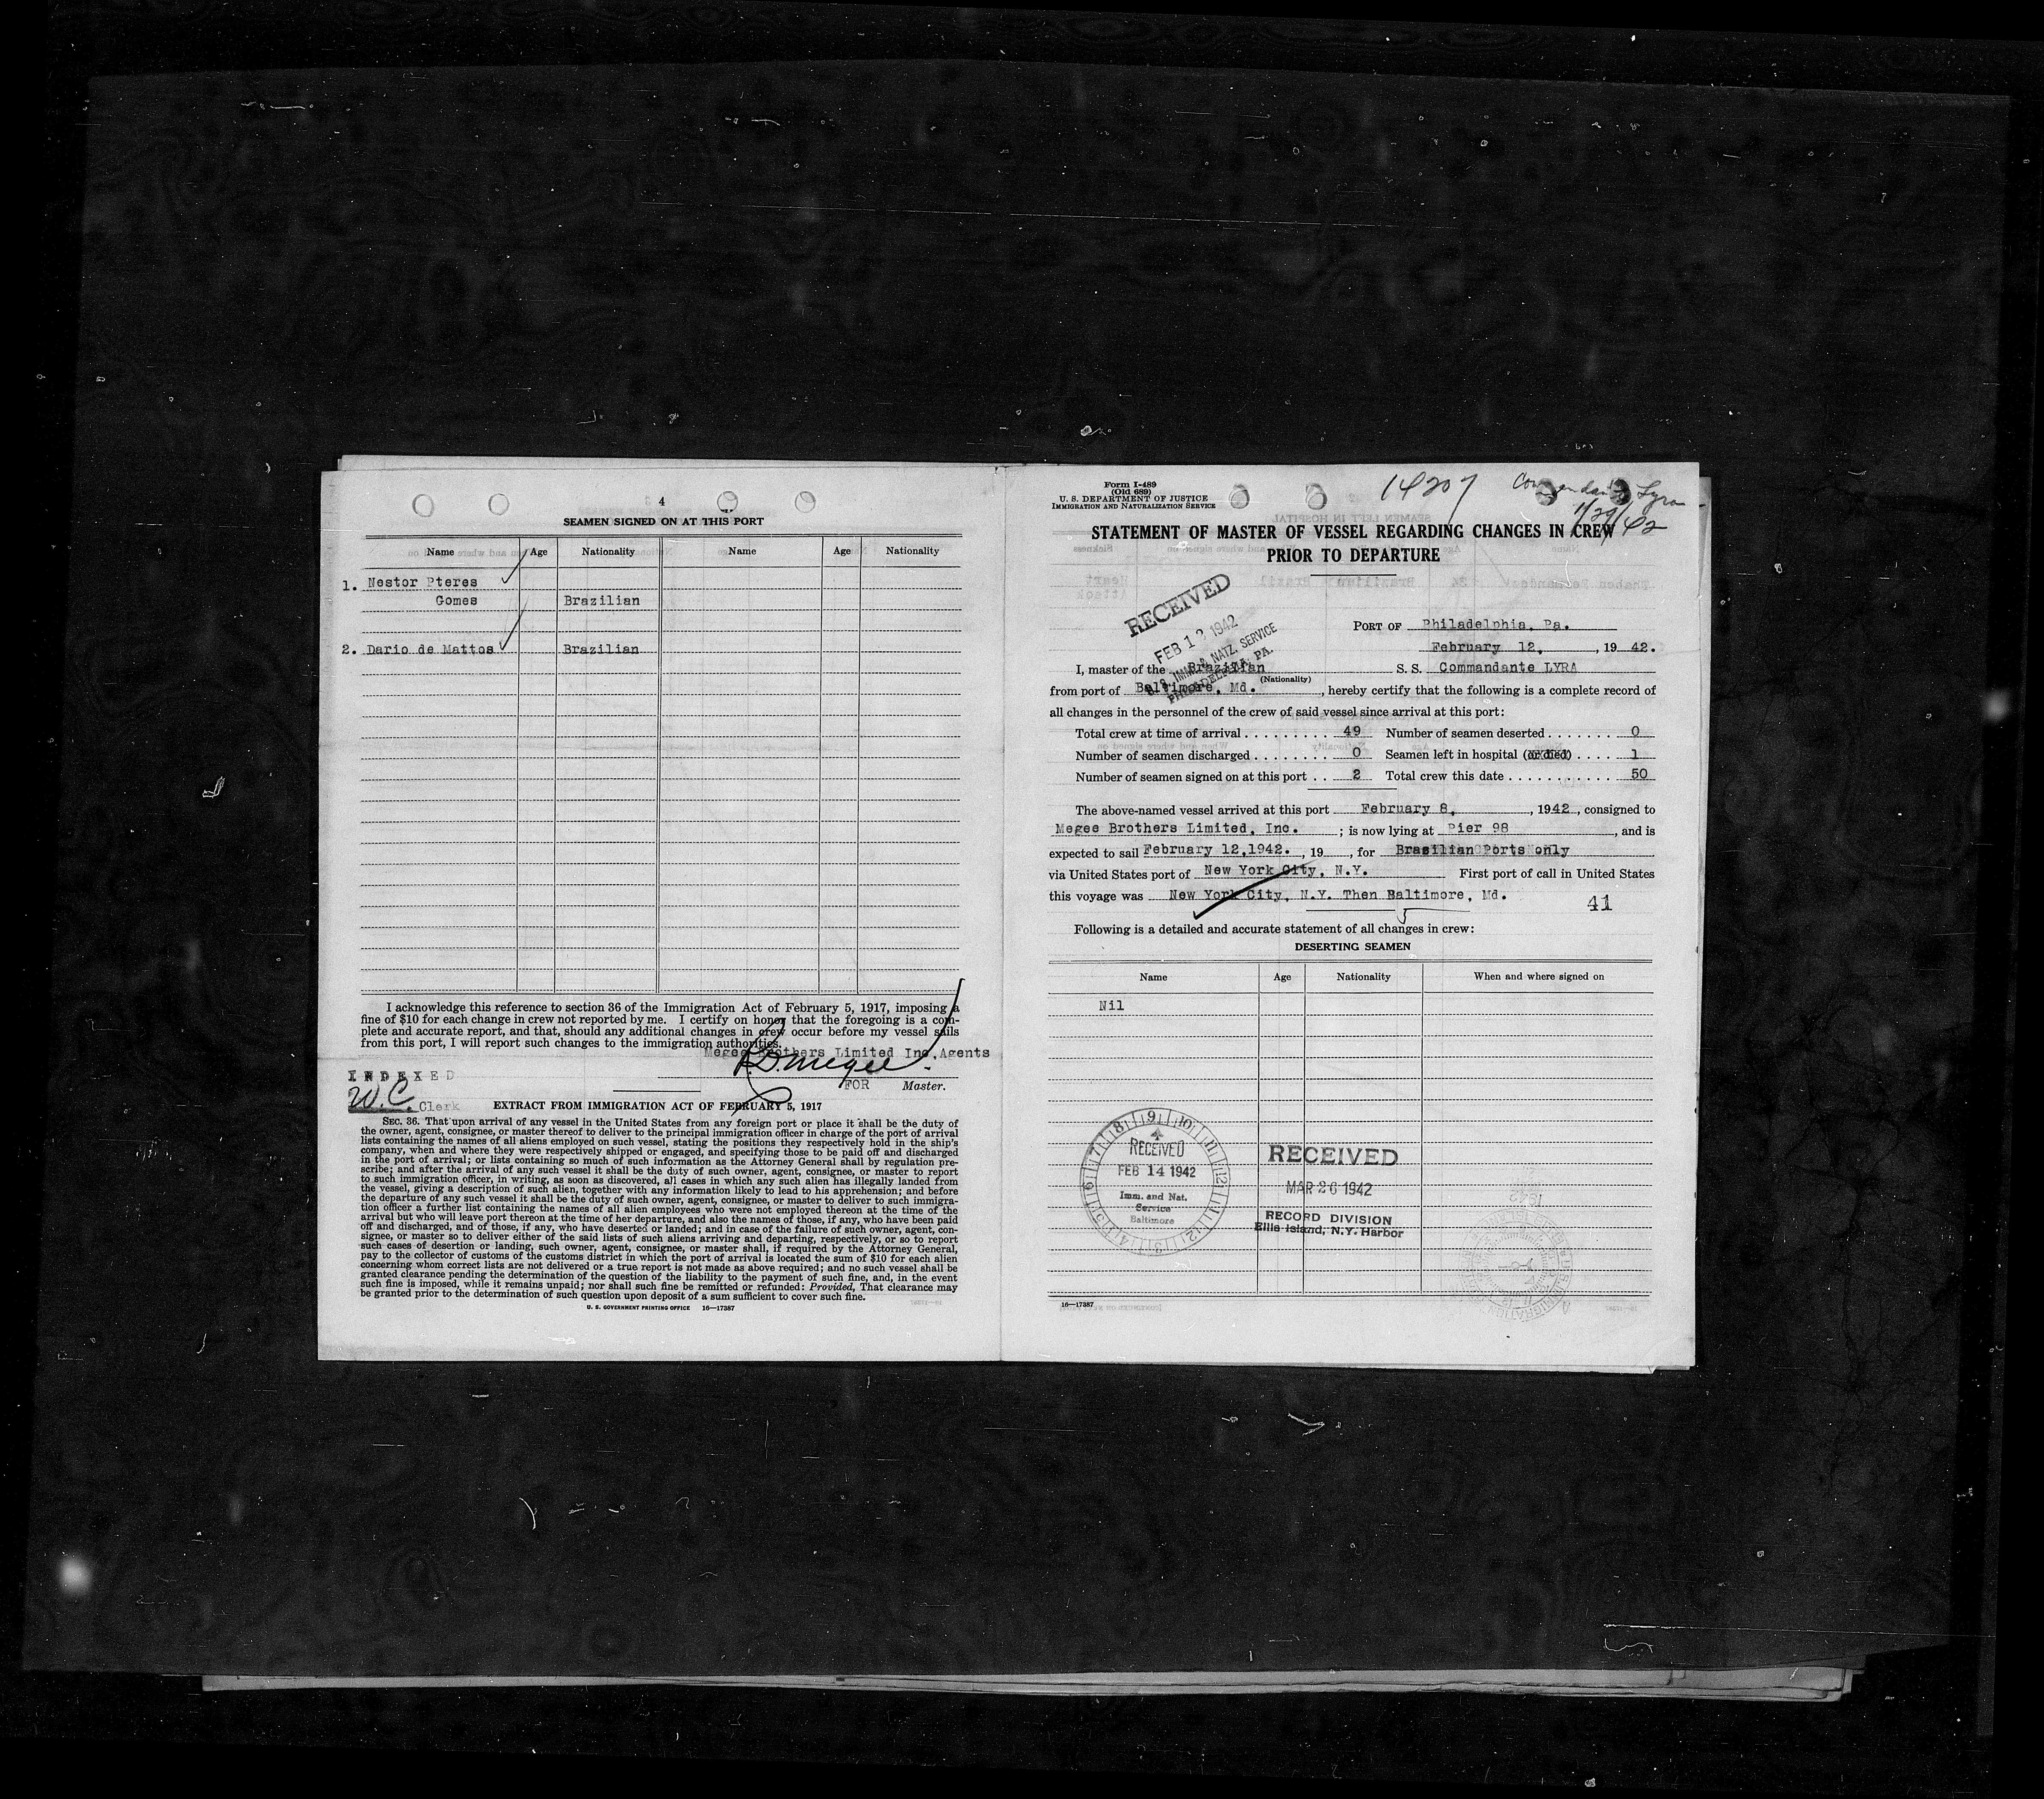 4
SEAMEN SIGNED ON AT THIS PORT
Name Age Nationality Name Age Nationality
1. Nestor Pteres
Gomes Brazilian
2. Dario de Mattos Brazilian
I acknowledge this reference to section 36 of the Immigration Act of February 5, 1917, imposing a
fine of $10 for each change in crew not reported by me. I certify on honor that the foregoing is a com-
plete and accurate report, and that, should any additional changes in crew occur before my vessel sails
from this port, I will report such changes to the immigration authorities.
Megee Brothers Limited Inc. Agents
FOR Master.
INDEXED
W.C. Clerk
EXTRACT FROM IMMIGRATION ACT OF FEBRUARY 5, 1917
SEC. 36. That upon arrival of any vessel in the United States from any foreign port or place it shall be the duty of
the owner, agent, consignee, or master thereof to deliver to the principal immigration officer in charge of the port of arrival
lists containing the names of all aliens employed on such vessel, stating the positions they respectively hold in the ship's
company, when and where they were respectively shipped or engaged, and specifying those to be paid off and discharged
in the port of arrival; or lists containing so much of such information as the Attorney General shall by regulation pre-
scribe; and after the arrival of any such vessel it shall be the duty of such owner, agent, consignee, or master to report
to such immigration officer, in writing, as soon as discovered, all cases in which any such alien has illegally landed from
the vessel, giving a description of such alien, together with any information likely to lead to his apprehension; and before
the departure of any such vessel it shall be the duty of such owner, agent, consignee, or master to deliver to such immigra-
tion officer a further list containing the names of all alien employees who were not employed thereon at the time of the
arrival but who will leave port thereon at the time of her departure, and also the names of those, if any, who have been paid
off and discharged, and of those, if any, who have deserted or landed; and in case of the failure of such owner, agent, con-
signee, or master so to deliver either of the said lists of such aliens arriving and departing, respectively, or so to report
such cases of desertion or landing, such owner, agent, consignee, or master shall, if required by the Attorney General,
pay to the collector of customs of the customs district in which the port of arrival is located the sum of $10 for each alien
concerning whom correct lists are not delivered or a true report is not made as above required; and no such vessel shall be
granted clearance pending the determination of the question of the liability to the payment of such fine, and, in the event
such fine is imposed, while it remains unpaid; nor shall such fine be remitted or refunded: Provided, That clearance may
be granted prior to the determination of such question upon deposit of a sum sufficient to cover such fine.
U. S. GOVERNMENT PRINTING OFFICE 16—17387
Form I-489
(Old 689)
U. S. DEPARTMENT OF JUSTICE
IMMIGRATION AND NATURALIZATION SERVICE
14207
Commandante Lyra
1/29/42
STATEMENT OF MASTER OF VESSEL REGARDING CHANGES IN CREW
PRIOR TO DEPARTURE
RECEIVED
FEB 12 1942
U. S. IMMI. & NATZ. SERVICE
PHILADELPHIA, PA.
PORT OF Philadelphia, Pa.
February 12, , 19 42.
I, master of the Brazilian S. S. Commandante LYRA
(Nationality)
from port of Baltimore, Md. , hereby certify that the following is a complete record of
all changes in the personnel of the crew of said vessel since arrival at this port:
Total crew at time of arrival . . . . . . . . . 49 Number of seamen deserted . . . . . . . 0
Number of seamen discharged . . . . . . . . 0 Seamen left in hospital (or died) . . . . 1
Number of seamen signed on at this port . . 2 Total crew this date . . . . . . . . . . . . 50
The above-named vessel arrived at this port February 8, , 1942, consigned to
Megee Brothers Limited, Inc. ; is now lying at Pier 98 , and is
expected to sail February 12,1942. , 19 , for Brasilian Ports only
via United States port of New York City, N.Y. First port of call in United States
this voyage was New York City, N.Y. Then Baltimore, Md.
41
5
Following is a detailed and accurate statement of all changes in crew:
DESERTING SEAMEN
Name Age Nationality When and where signed on
Nil
RECEIVED
FEB 14 1942
Imm. and Nat.
Service
Baltimore
RECEIVED
MAR 26 1942
RECORD DIVISION
Ellis Island, N.Y. Harbor
16—17387